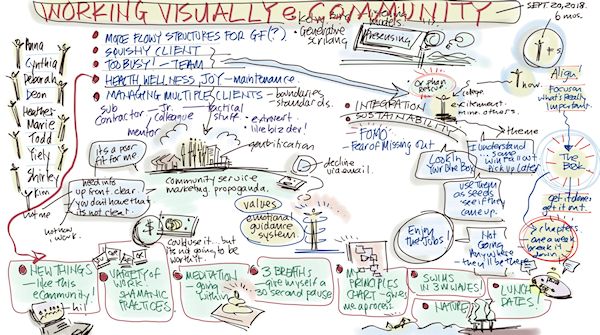 WORKING VISUALLY & COMMUNITY
SEPT. 20, 2018.
6 mos.
Anna
Cynthia
Deborah
Dean
Heather
Marie
Todd
Shirley
Kim
not me
MORE FLOWY STRUCTURES FOR GF(?)
SQUISHY CLIENT
TOO BUSY! - TEAM
HEALTH, WELLNESS, JOY - maintenance
MANAGING MULTIPLE CLIENTS - boundaries
standards.
Generative
Scribing
models
Presensing
Sub
Contractor
Jr.
colleague
tactical
stuff
mentor
extrovert
like biz dev!
gentrification
It's a poor
fit for me
community service
marketing. propaganda.
decline
via email.
Need info
up front. clear.
you don't have that
its not clear.
not now,
work.
could use it... but
not going to be
worth it.
values
emotional
guidance
system.
Or phan
Rescue
college
excitement
mine. others.
INTEGRATION
SUSTAINABILITY
FOMO
- Fear of Missing Out
now.
theme
Align!
Focus on
What's Really
Important.
Look In
Your One Box
I understand
some
will fall out
Pick up Later
use them
as seeds
see if they
come up.
The
Book
Get it done.
get it out.
3 chapters
are a week
break it
down.
Enjoy
the Jobs
Not
Going
Anywhere
they'll be there
NEW THINGS
- like this
ecommunity!
hi!
VARIETY OF
WORK.
SHAMANIC
PRACTICES.
MEDITATION
- going
within
3 BREATHS
- give myself a
30 second pause
MY
PRINCIPLES
CHART - gives
me a process.
SWIMS
IN 3 MN LAKES!
NATURE
LUNCH
DATES!